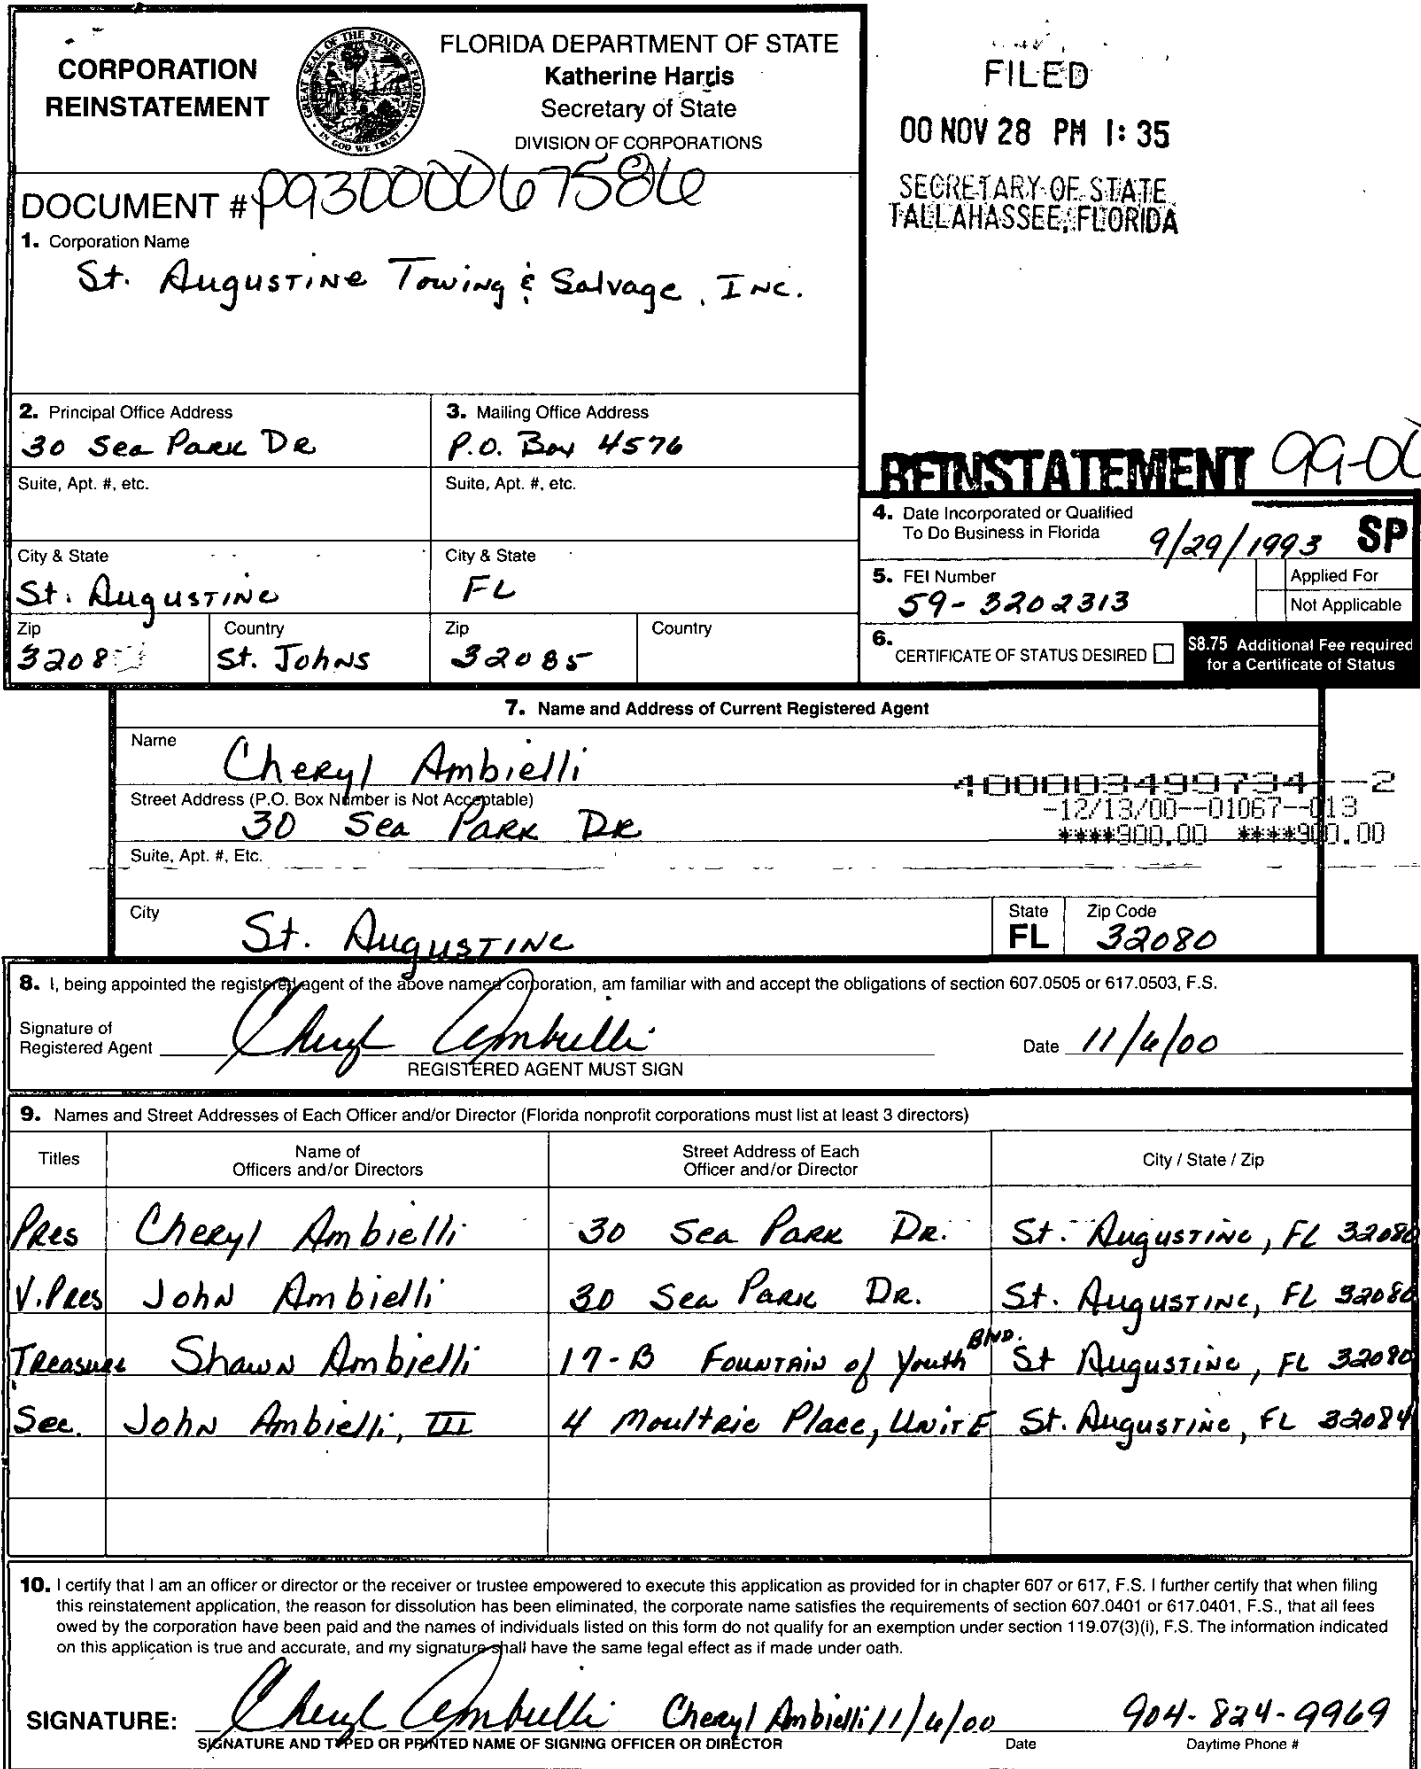 CORPORATION
REINSTATEMENT
GREAT SEAL OF THE STATE OF FLORIDA
IN GOD WE TRUST
FLORIDA DEPARTMENT OF STATE
Katherine Harris
Secretary of State
DIVISION OF CORPORATIONS
FILED
00 NOV 28 PM 1:35
SECRETARY OF STATE
TALLAHASSEE, FLORIDA
DOCUMENT # P93000067586
1. Corporation Name
St. Augustine Towing & Salvage, Inc.
2. Principal Office Address
30 Sea Park DR
3. Mailing Office Address
P.O. Box 4576
Suite, Apt. #, etc.
Suite, Apt. #, etc.
City & State
St. Augustine
City & State
FL
Zip
3208
Country
St. Johns
Zip
32085
Country
REINSTATEMENT 99-00
4. Date Incorporated or Qualified
To Do Business in Florida
9/29/1993
SP
5. FEI Number
59-3202313
Applied For
Not Applicable
6.
CERTIFICATE OF STATUS DESIRED
$8.75 Additional Fee required
for a Certificate of Status
7. Name and Address of Current Registered Agent
Name
Cheryl Ambielli
Street Address (P.O. Box Number is Not Acceptable)
30 Sea Park DR
400003499734--2
-12/13/00--01067--013
****900.00 ****900.00
Suite, Apt. #, Etc.
City
St. Augustine
State
FL
Zip Code
32080
8. I, being appointed the registered agent of the above named corporation, am familiar with and accept the obligations of section 607.0505 or 617.0503, F.S.
Signature of
Registered Agent
Cheryl Ambielli
REGISTERED AGENT MUST SIGN
Date 11/6/00
9. Names and Street Addresses of Each Officer and/or Director (Florida nonprofit corporations must list at least 3 directors)
Titles
Name of
Officers and/or Directors
Street Address of Each
Officer and/or Director
City / State / Zip
Pres Cheryl Ambielli 30 Sea Park DR. St. Augustine, FL 32080
V. Pres John Ambielli 30 Sea Park DR. St. Augustine, FL 32080
Treasure Shawn Ambielli 17-B Fountain of Youth Blvd. St Augustine, FL 32080
Sec. John Ambielli, III 4 Moultrie Place, Unit E St. Augustine, FL 32084
10. I certify that I am an officer or director or the receiver or trustee empowered to execute this application as provided for in chapter 607 or 617, F.S. I further certify that when filing
this reinstatement application, the reason for dissolution has been eliminated, the corporate name satisfies the requirements of section 607.0401 or 617.0401, F.S., that all fees
owed by the corporation have been paid and the names of individuals listed on this form do not qualify for an exemption under section 119.07(3)(i), F.S. The information indicated
on this application is true and accurate, and my signature shall have the same legal effect as if made under oath.
SIGNATURE: Cheryl Ambielli Cheryl Ambielli 11/6/00 904-824-9969
SIGNATURE AND TYPED OR PRINTED NAME OF SIGNING OFFICER OR DIRECTOR
Date
Daytime Phone #